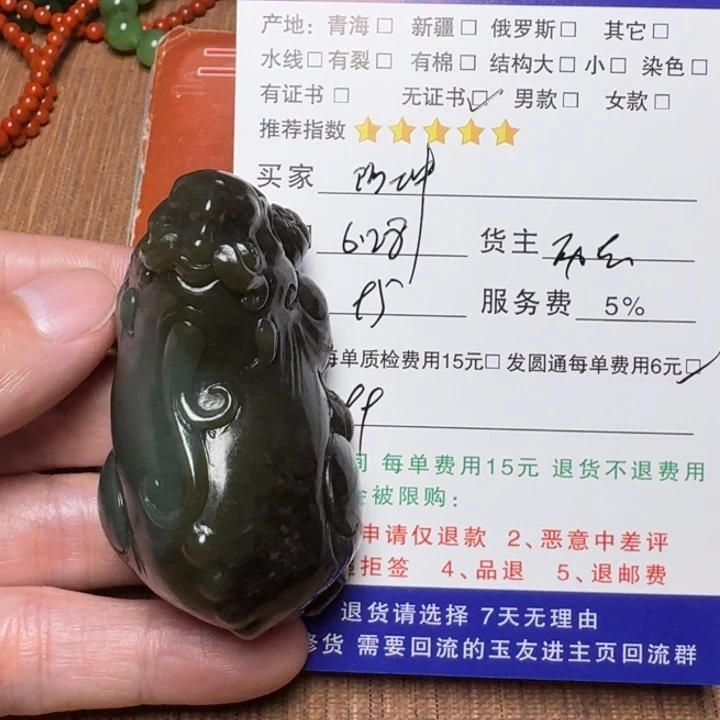 产地：青海□ 新疆□ 俄罗斯□ 其它□
水线□ 有裂□ 有棉□ 结构大□ 小□ 染色□
有证书□ 无证书□ 男款□ 女款□
推荐指数
买家
6.28 货主
95 服务费 5%
每单质检费用15元□ 发圆通每单费用6元□
99
间 每单费用15元 退货不退费用
会被限购：
申请仅退款 2、恶意中差评
拒签 4、品退 5、退邮费
退货请选择 7天无理由
修货 需要回流的玉友进主页回流群